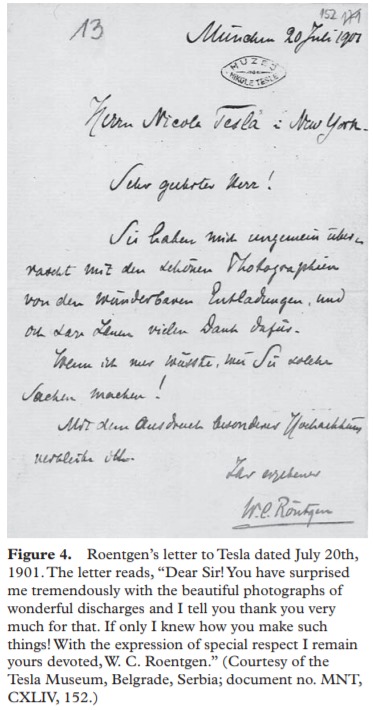 13
152 179
München 20 Juli 1901
MUZEJ
NIKOLE TESLE
Herrn Nicola Tesla i New York.
Sehr geehrter Herr!
Sie haben mich ungemein über-
rascht mit den schönen Photographien
von den wunderbaren Entladungen, und
ich sage Ihnen vielen Dank dafür.
Wenn ich nur wüsste, wie Sie solche
Sachen machen!
Mit dem Ausdruck besonderer Hochachtung
verbleibe ich
Ihr ergebener
W.C. Röntgen
Figure 4. Roentgen's letter to Tesla dated July 20th,
1901. The letter reads, “Dear Sir! You have surprised
me tremendously with the beautiful photographs of
wonderful discharges and I tell you thank you very
much for that. If only I knew how you make such
things! With the expression of special respect I remain
yours devoted, W. C. Roentgen.” (Courtesy of the
Tesla Museum, Belgrade, Serbia; document no. MNT,
CXLIV, 152.)